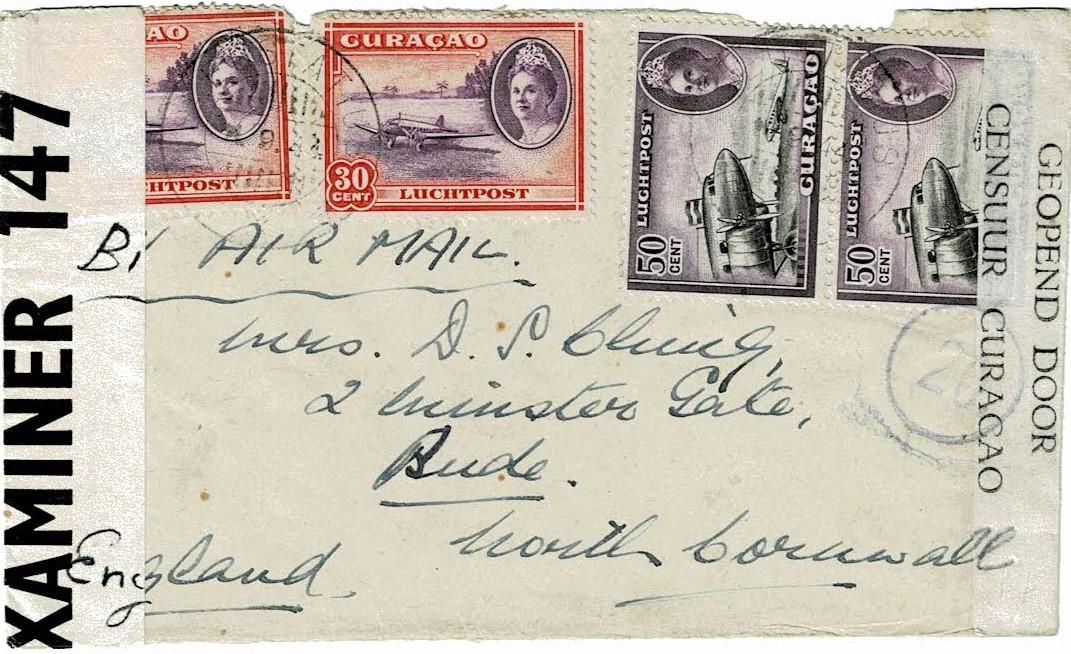 XAMINER 147
AO
CHTPOST
CURAÇAO
30
CENT
LUCHTPOST
LUCHTPOST
CURAÇAO
50
CENT
LUCHTPOST
50
CENT
GEOPEND DOOR
CENSUUR CURAÇAO
By AIR MAIL.
Mrs. D. S.
2 Minster Gate,
Bude.
North Cornwall
England.